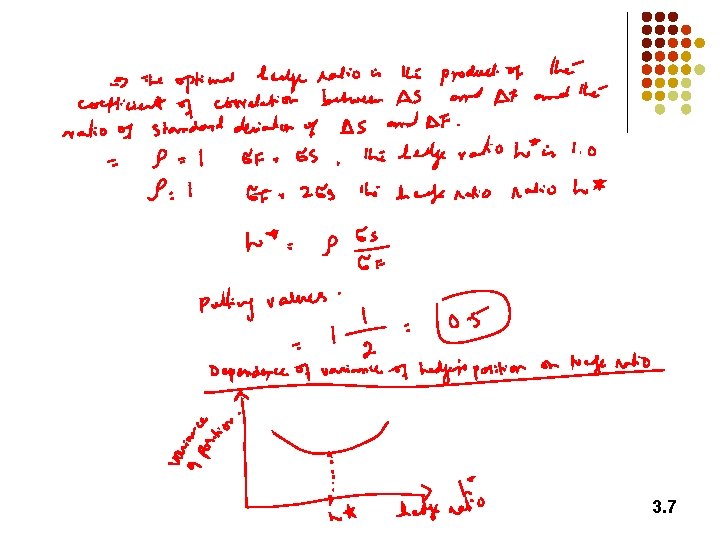 ⇒ The optimal hedge ratio is the product of the
coefficient of correlation between ΔS and ΔF and the
ratio of standard deviation of ΔS and ΔF.
= ρ = 1 σF = σS, the hedge ratio h* is 1.0
ρ = 1 σF = 2σS the hedge ratio ratio h*
h* = ρ σS
σF
Putting values.
= 1 1/2 = 0.5
Dependence of variance of hedger's position on hedge ratio
variance
of position.
h* hedge ratio h*
3.7